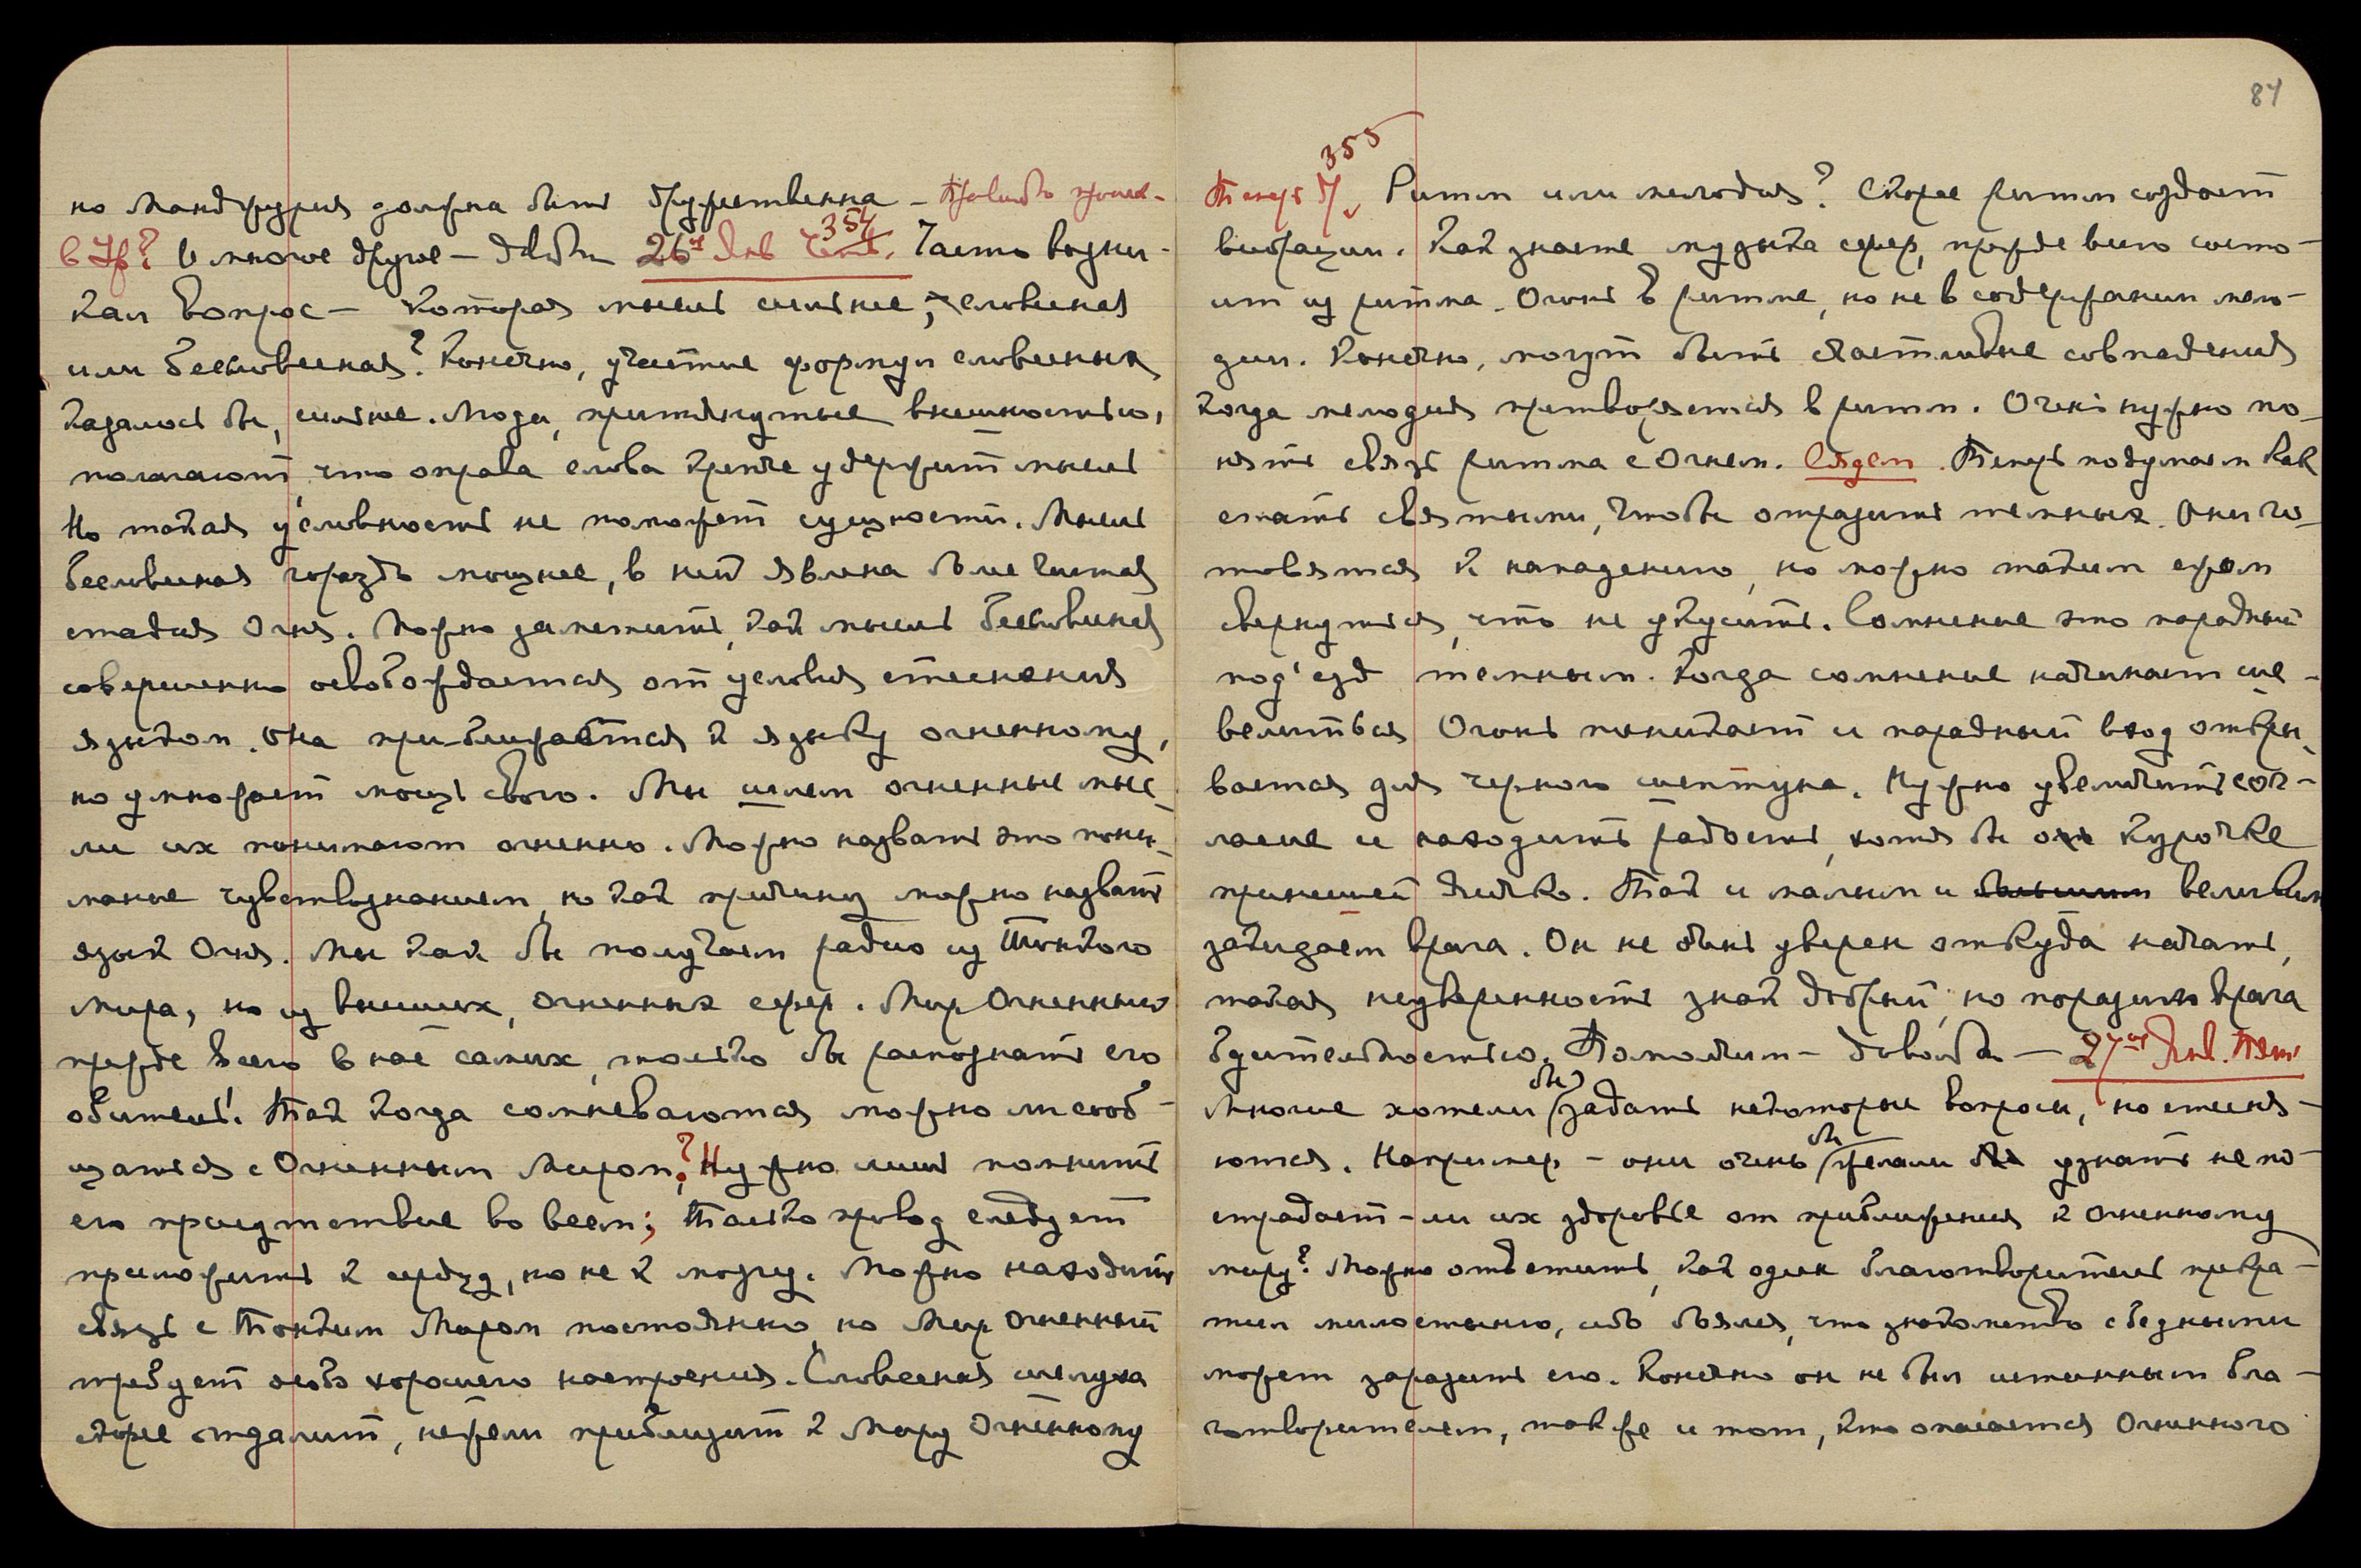 но Манджурия должна быть дружественна –
в Хр? И многое другое – довольно 26ое Янв Четв. 354 Часто возни-
кал вопрос – которая мысль сильнее, словесная
или бессловесная? Конечно, участие формул словесных
казалось бы, сильнее. Люди, притянутые внешностью,
полагают, что оправа слова крепче удержит мысль
Но такая условность не поможет сущности. Мысль
бессловесная гораздо мощнее, в ней явлена более чистая
стадия Огня. Можно заметить, как мысль бессловесная
совершенно освобождается от условия стеснения
языком. Она приближается к языку огненному,
но умножает мощь свою. Мы шлем огненные мыс-
ли их понимают огненно. Можно назвать это пони-
мание чувствознанием, но как причину можно назвать
язык Огня. Мы как бы получаем радио из Тонкого
Мира, но из высших, огненных сфер. Мир Огненный
прежде всего в нас самих, только бы распознать его
обитель! Так когда сомневаются можно ли сооб-
щаться с Огненным Миром? Нужно лишь помнить
его присутствие во всем; Только провод следует
приложить к сердцу, но не к мозгу. Можно находить
связь с Тонким Миром постоянно, но Мир Огненный
требует особо хорошего настроения. Словесная шелуха
скорее отдалит, нежели приблизит к Миру Огненному
84
355
Теперь Ритм или мелодия? Скорее ритм создает
вибрации. Как знаете музыка сфер, прежде всего состо-
ит из ритма. Огонь в ритме, но не в содержании мело-
дии. Конечно, могут быть счастливые совпадения
когда мелодия претворяется в ритм. Очень нужно по-
нять связь ритма с Огнем. Сядем. Теперь подумаем как
стать святыми, чтобы отразить темных. Они го-
товятся к нападению, но можно таким ежом
свернуться, что не укусить. Сомнение это парадный
под'езд темным. Когда сомнение начинает ше-
велиться Огонь поникает и парадный вход откры-
вается для черного шептуна. Нужно увеличить сог-
ласие и находить радость, хотя бы о курочке
принесшей яичко. Так и малым и великим
закидаем врага. Он не очень уверен откуда начать,
такая неуверенность знак добрый, но поразим врага
бдительностью. Помолчим – довольно – 27ое Янв. Пят.
Многие хотели бы задать некоторые вопросы, но стесня-
ются. Например – они очень бы желали узнать не по-
страдает-ли их здоровье от приближения к огненному
миру? Можно ответить, как один благотворитель прекра-
тил милостыню, ибо боялся, что знакомство с бедными
может заразить его. Конечно он не был истинным бла-
готворителем, также и тот, кто опасается Огненного